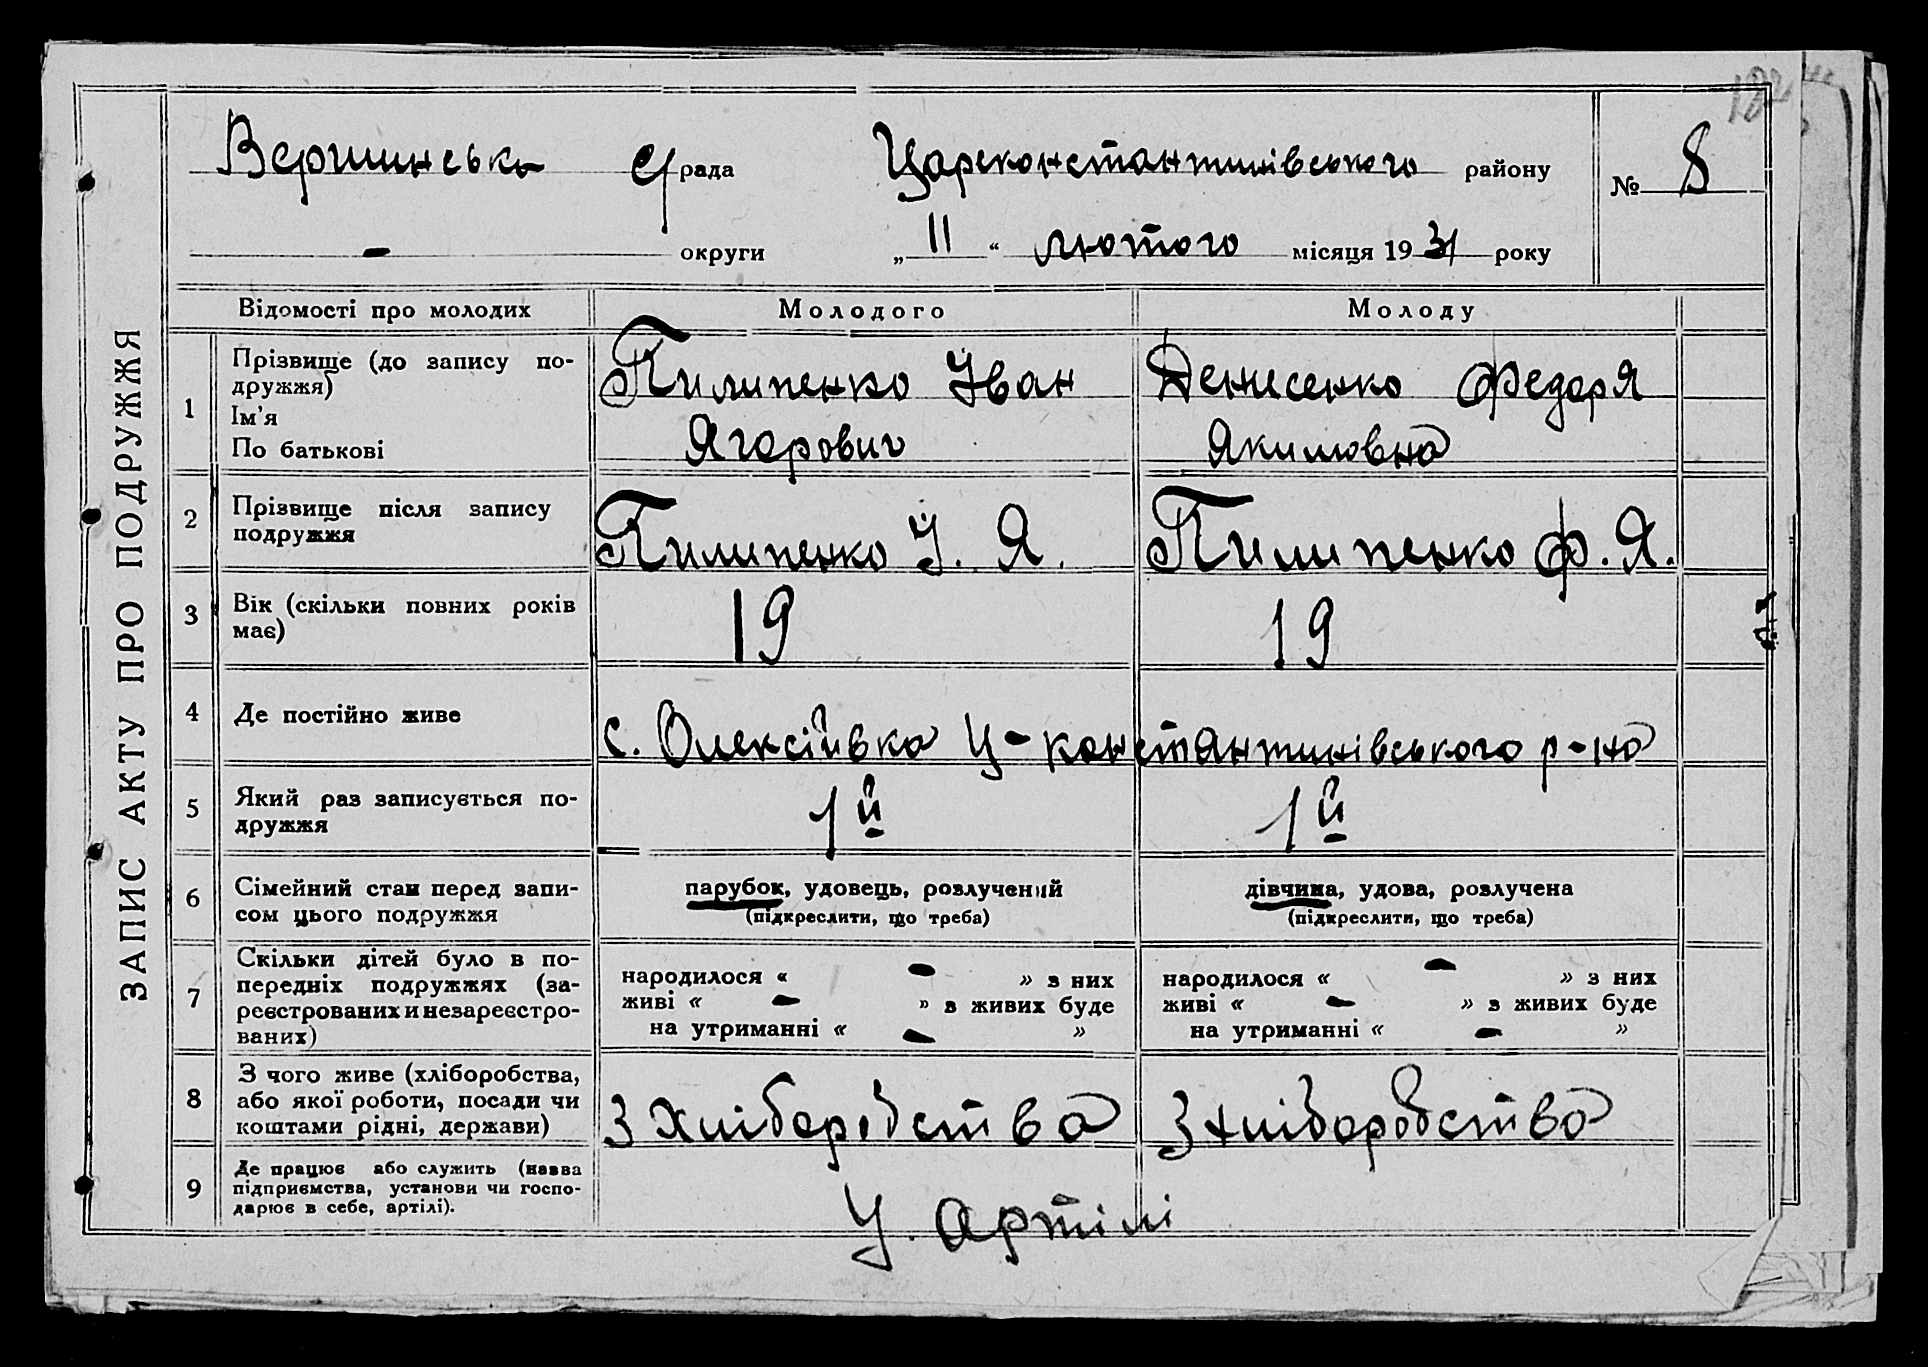 ЗАПИС АКТУ ПРО ПОДРУЖЖЯ
Вершинська с/рада Царсконстантинівського району № 8
- округи „11“ лютого місяця 1931 року
Відомості про молодих Молодого Молоду
1 Прізвище (до запису по-
дружжя)
Ім'я
По батькові
Пилипенко Іван
Ягорович
Денисенко Федоря
Якимовна
2 Прізвище після запису
подружжя
Пилипенко І. Я. Пилипенко Ф. Я.
3 Вік (скільки повних років
має)
19 19
4 Де постійно живе с. Олексіївка Ц-константинівського р-на
5 Який раз записується по-
дружжя
1й 1й
6 Сімейний стан перед запи-
сом цього подружжя
парубок, удовець, розлучений
(підкреслити, що треба)
дівчина, удова, розлучена
(підкреслити, що треба)
7 Скільки дітей було в по-
передніх подружжях (за-
реєстрованих и незареєстро-
ваних)
народилося « - » з них
живі « - » з живих буде
на утриманні « - »
народилося « - » з них
живі « - » з живих буде
на утриманні « - »
8 З чого живе (хліборобства,
або якої роботи, посади чи
коштами рідні, держави)
З хліборобства З хліборобства
9 Де працює або служить (назва
підприємства, установи чи госпо-
дарює в себе, артілі).
У. артілі